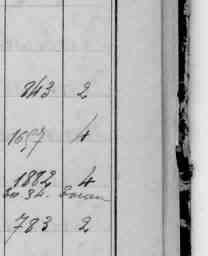 843 2
1657 4
1882 4
783 2